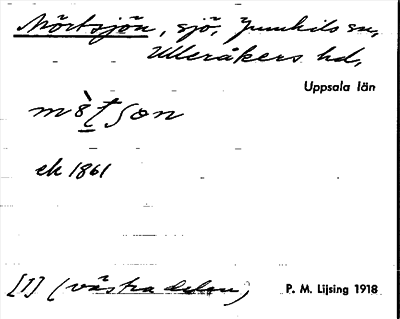 Mörtsjön, sjö, Jumkils sn,
Ulleråkers hd,
Uppsala län
ek 1861
[I] (västra delen)
P. M. Lijsing 1918